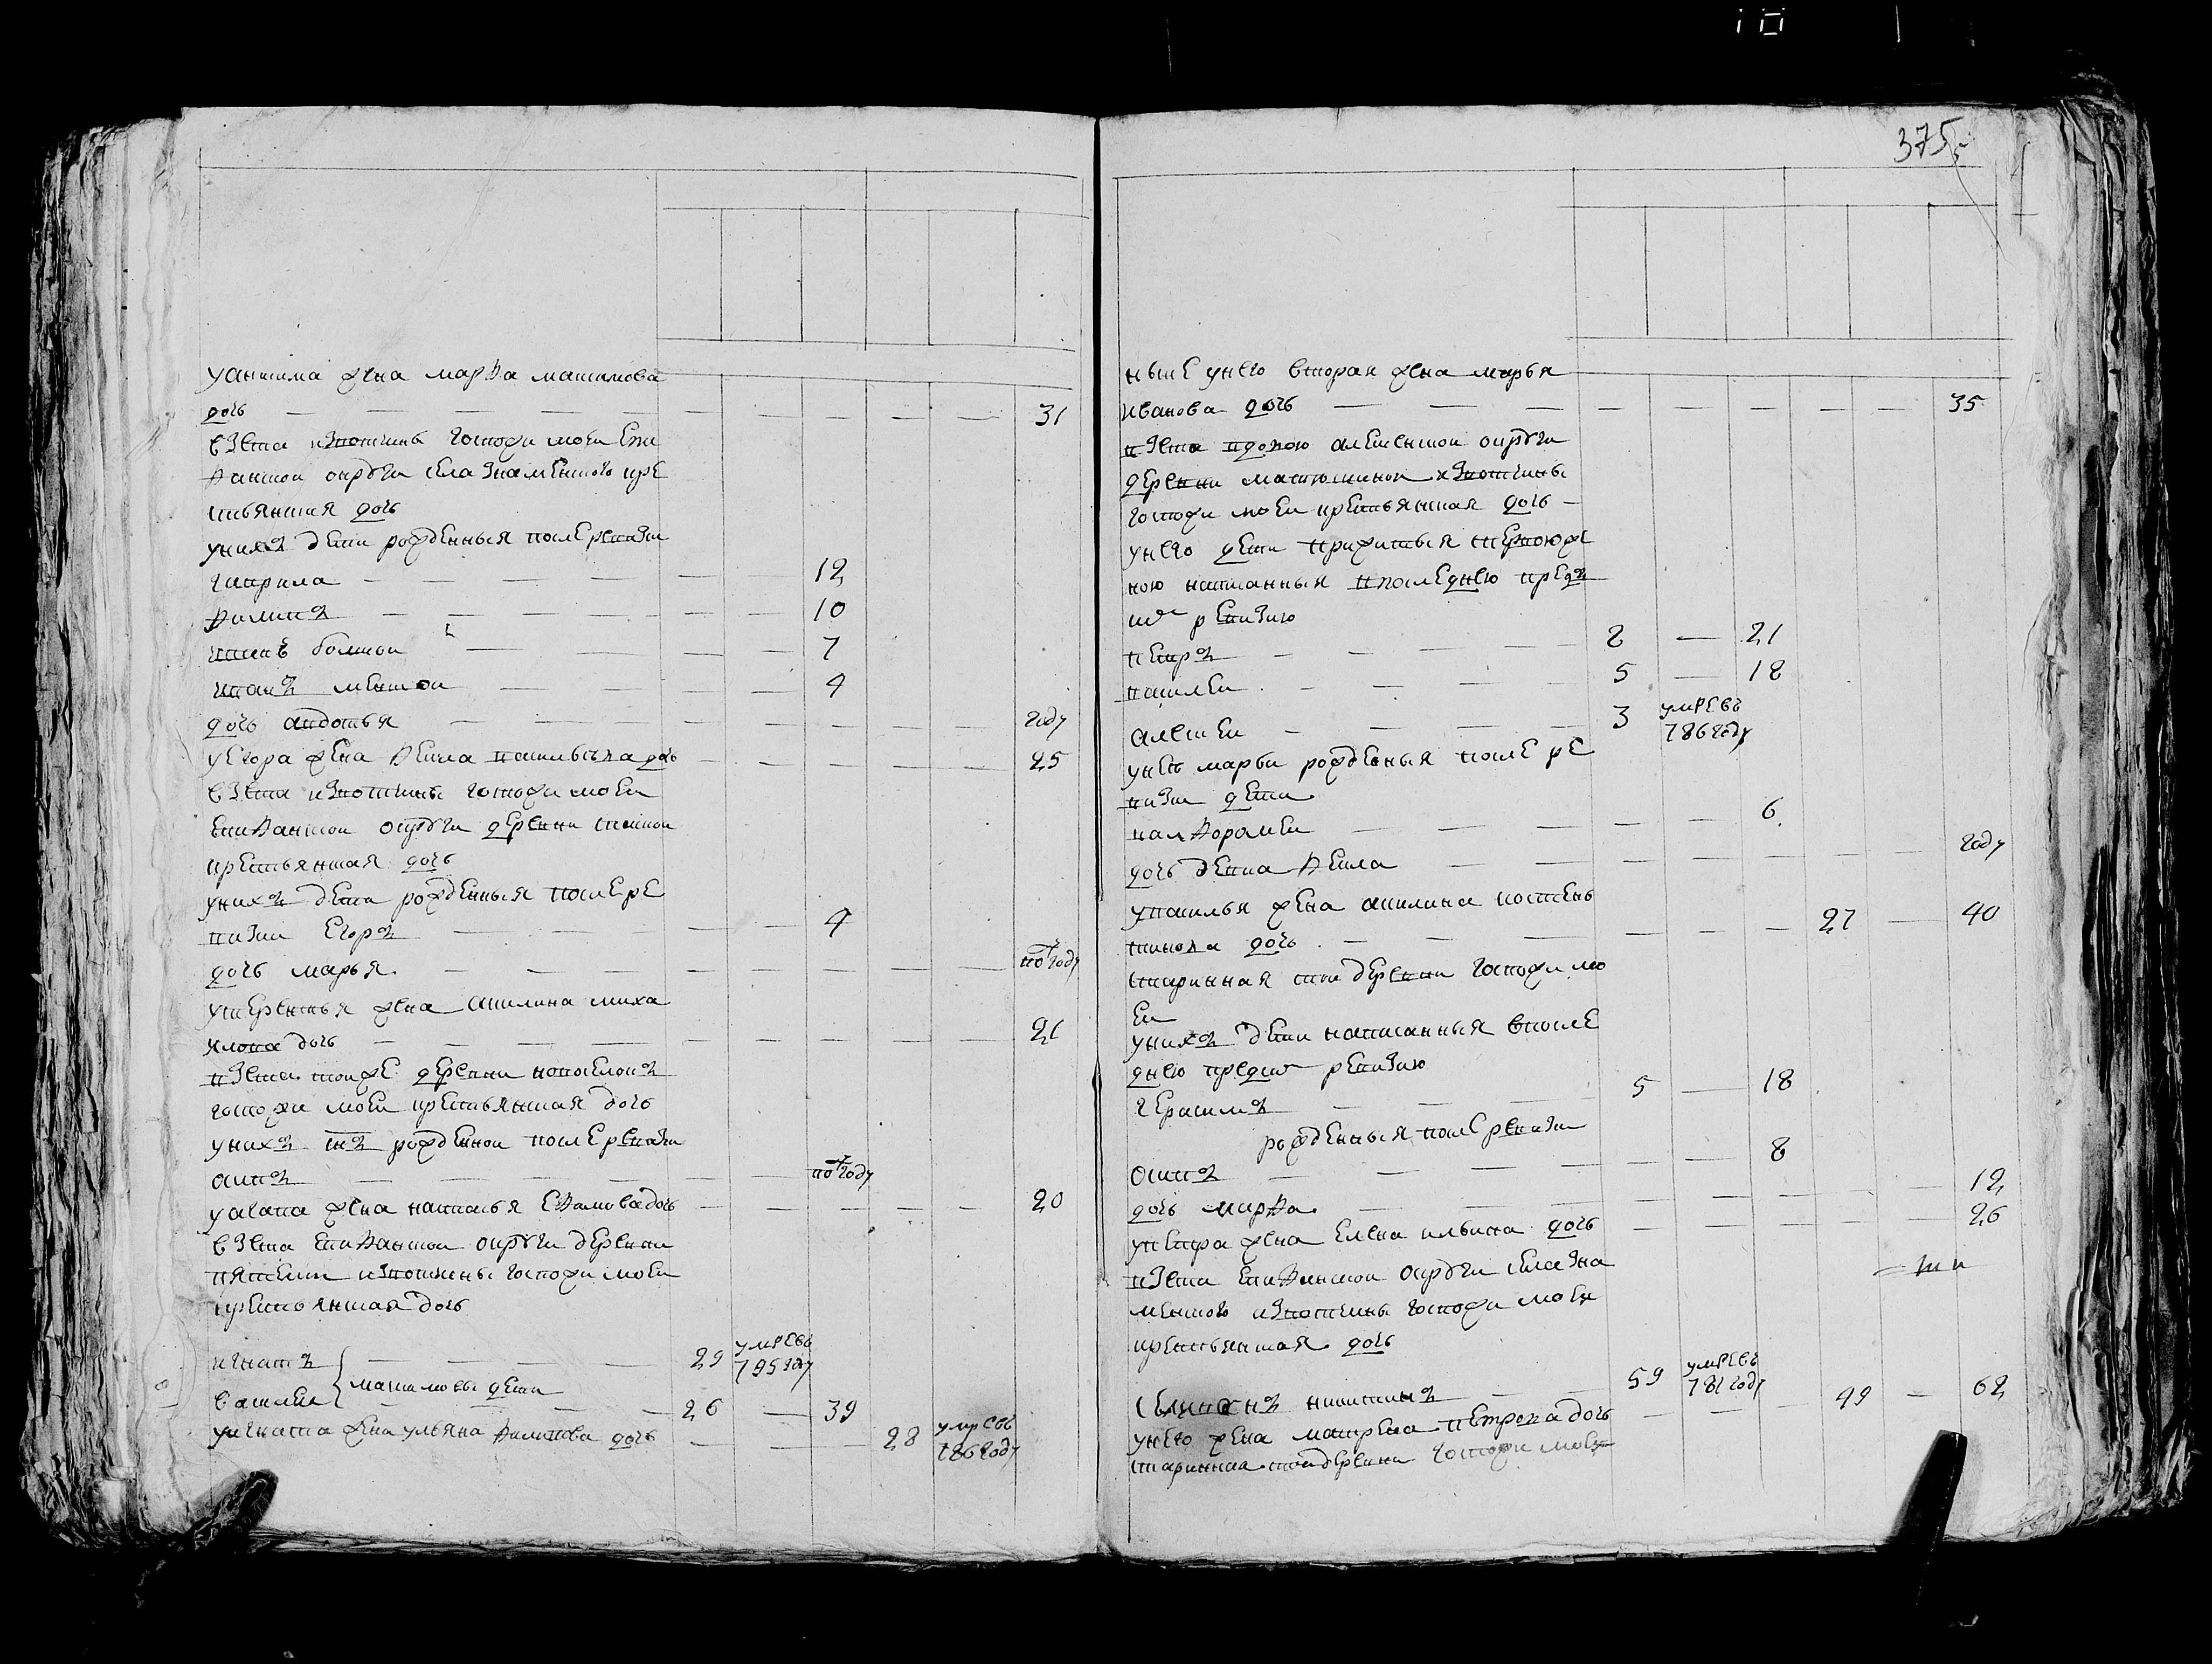 375
у анисима жена марфа максимова
дочь — — — — — — — — — 31
взета извотчины госпожи моеи епи
фанскои округи села знаменского кре
стьянская дочь
у них дети рожденныя после ревизии
гаврила — — — — — — 12
филипъ — — — — — — 10
иванъ болшои — — — 7
иванъ меншои — — — 4
дочь авдотья — — — — — — году
у егора жена фекла васильева дочь — — — — — 25
взета извотчины госпожи моеи
епифанскои округи деревни
крестьянская дочь
у них дети рожденныя после ре
визии егоръ — — — 4
дочь марья — — — — — — по году
жена акилина миха
илова дочь — — — — — — 21
взета тоеже деревни
госпожи моеи крестьянская дочь
у них сн рожденнои после ревизии
осипъ — — — — по году
жена наталья ефимова дочь — — — — — 20
взета епифанскои округи деревни
извотчины госпожи моеи
крестьянская дочь
игнатъ — — — — 29 умре въ 795 году
василеи максимовы дети — 26 — 39
у игната жена ульяна филипова дочь — — — 28 умре въ 786 году
ныне у него вторая жена марья
иванова дочь — — — — — — — — 35
взета вдовою алексенскои округи
деревни матюшинои извотчины
госпожи моеи крестьянская дочь —
у него дети прижитыя с первою же
ною написанныя в последнею пред
сим ревизию
петръ — — — — 8 — 21
василеи — — — — 5 — 18
алексеи — — — 3 умре въ 786 году
у неи марьи рожденыя после ре
визии дети
варфоломеи — — — — — 6
дочь девка фекла — — — — — — году
у василья жена акилина костень
тинова дочь — — — — — 27 — 40
старинная тои деревни госпожи мо
еи
у них дети написанныя в после
днею предсим ревизию
герасимъ — — — 5 — 18
рожденныя после ревизии
осипъ — — — — — 8
дочь марфа — — — — — — 12
у петра жена елена ильина дочь — — — — — 26
взета епифанскои округи села зна
менского извотчины госпожи моеи
крестьянская дочь
никитинъ — 59 умре въ 781 году
у него жена матрена петрова дочь — — 49 — 62
старинная тои деревни госпожи моеи